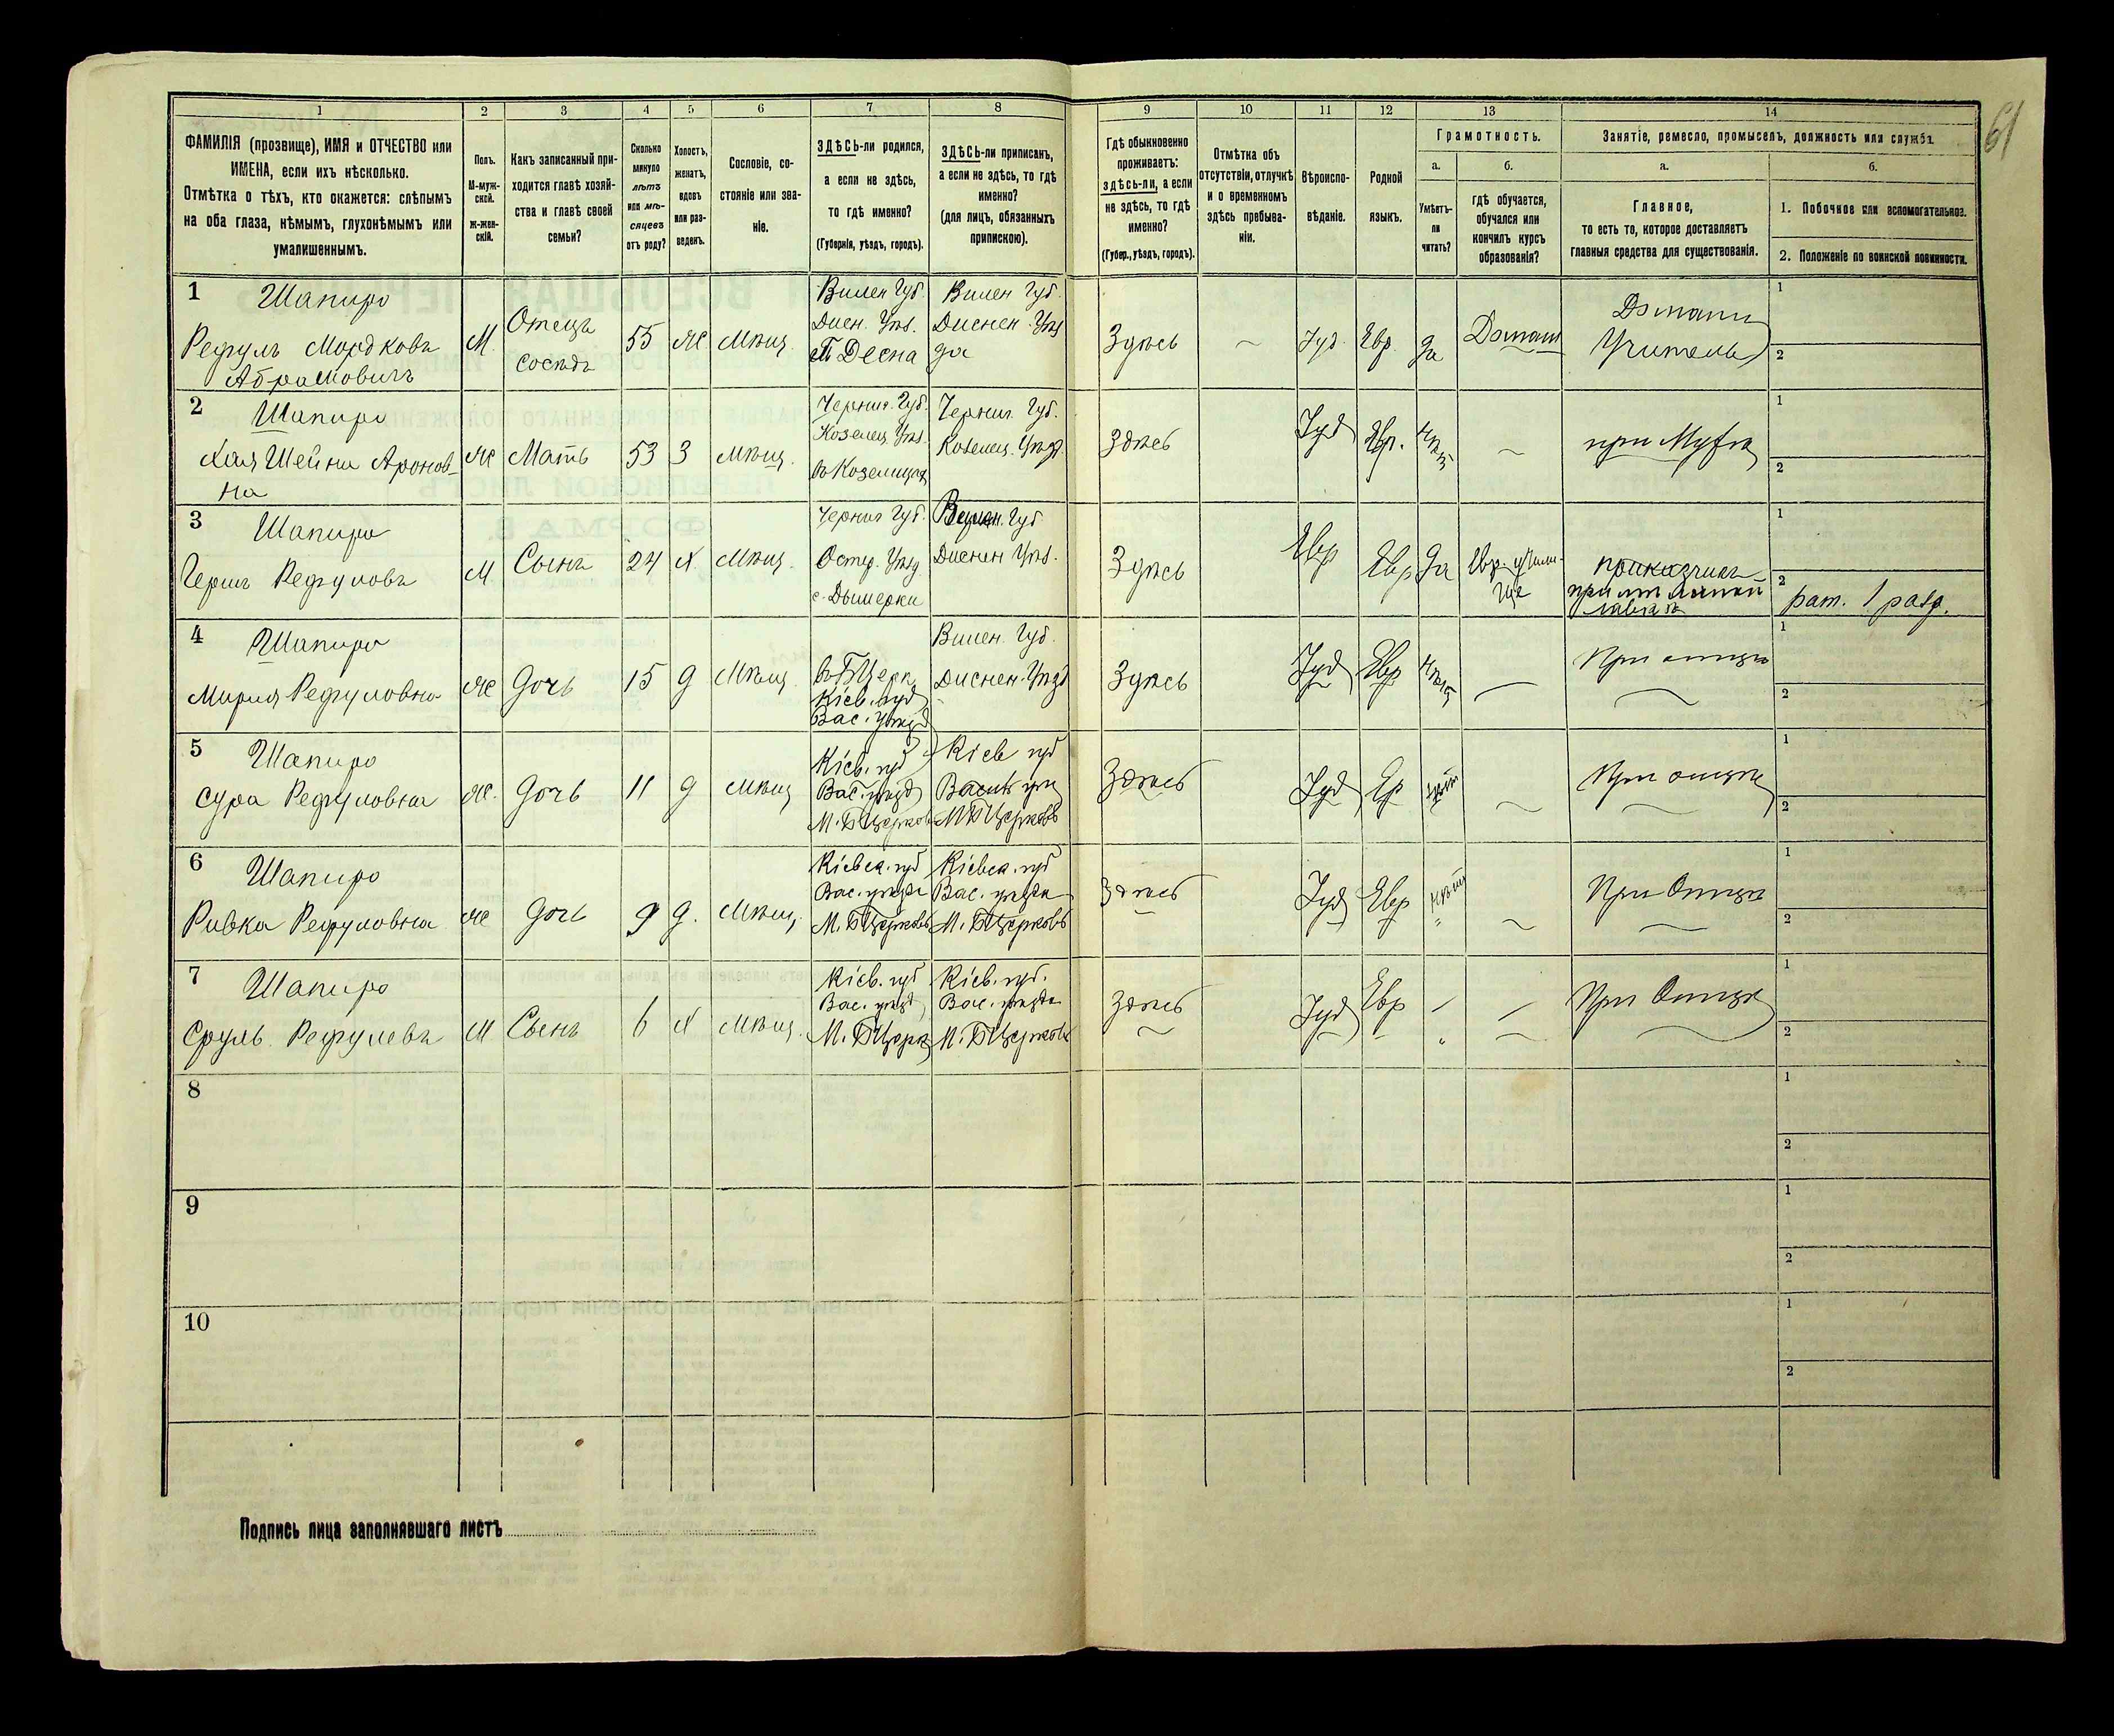 1 2 3 4 5 6 7 8 9 10 11 12 13 14
61
ФАМИЛІЯ (прозвище), ИМЯ и ОТЧЕСТВО или
ИМЕНА, если ихъ нѣсколько.
Отмѣтка о тѣхъ, кто окажется: слѣпымъ
на оба глаза, нѣмымъ, глухонѣмымъ или
умалишеннымъ.
Полъ.
М-муж-
ской.
ж-жен-
скій.
Какъ записанный при-
ходится главѣ хозяй-
ства и главѣ своей
семьи?
Сколько
минуло
лѣтъ
или мѣ-
сяцевъ
отъ роду?
Холостъ,
женатъ,
вдовъ
или раз-
веденъ.
Сословіе, со-
стояніе или зва-
ніе.
ЗДѢСЬ-ли родился,
а если не здѣсь,
то гдѣ именно?
(Губернія, уѣздъ, городъ).
ЗДѢСЬ-ли приписанъ,
а если не здѣсь, то гдѣ
именно?
(для лицъ, обязанныхъ
припискою).
Гдѣ обыкновенно
проживаетъ:
здѣсь-ли, а если
не здѣсь, то гдѣ
именно?
(Губер., уѣздъ, городъ).
Отмѣтка объ
отсутствіи, отлучкѣ
и о временномъ
здѣсь пребыва-
ніи.
Вѣроиспо-
вѣданіе.
Родной
языкъ.
Грамотность.
а.
Умѣетъ-
ли
читать?
б.
гдѣ обучается,
обучался или
кончилъ курсъ
образованія?
Занятіе, ремесло, промыселъ, должность или служба.
а.
Главное,
то есть то, которое доставляетъ
главныя средства для существованія.
б.
1. Побочное или вспомогательное.
2. Положеніе по воинской повинности.
1 Шапиро
Рефуль Мордковъ
Абрамовичъ
М.
Отецъ
сосѣдъ
55
же
Мѣщ.
Вилен Губ.
Дисн. Уѣз.
Десна
Вилен Губ.
Диснен. Уѣз
да
Здѣсь
Іуд.
Евр.
да
Домаш
Домашн
Учитель
1
2
2 Шапиро
Хая Шейна Аронов-
на
же
Мать
53
З
мѣщ.
Черниг. Губ.
Козелец Уѣз.
въ Козельцѣ
Черниг. Губ.
Козелец. Уѣзд.
Здѣсь
Іуд
Евр.
Нѣт
при Мужѣ
1
2
3 Шапиро
Гершъ Рефуловъ
М.
Сынъ
24
х
мѣщ.
Черниг Губ.
Остер. Уѣзд
с. Дымерки
Вилен. Губ
Диснен Уѣз.
Здѣсь
Евр
Евр
да
Евр. учили-
ще
приказчикъ
при
лавкѣ
1
2
рат. 1 разр.
4 Шапиро
Мирия Рефуловна
же
дочь
15
д
Мѣщ.
въ БЦерк
Кіев. губ
Вас. уѣзд
Вилен. Губ.
Диснен. Уѣзд
Здѣсь
Іуд
Евр
Нѣт
При отцѣ
1
2
5 Шапиро
Сура Рефуловна
же.
дочь
11
д
мѣщ
Кіев. губ
Вас. уѣзд
М. БЦерков
Кіев губ
Васил уѣз
М БЦерковь
Здѣсь
Іуд
Ер
Нѣт
При отцѣ
1
2
6 Шапиро
Ривка Рефуловна
же
дочь
9
д.
Мѣщ.
Кіевск. губ
Вас. уѣзда
М. БЦерковь
Кіевск. губ
Вас. уѣзда
М. БЦерковь
Здѣсь
Іуд
Евр
Нѣт
При Отцѣ
1
2
7 Шапиро
Сруль Рефулевъ
М
Сынъ
6
х
мѣщ.
Кіев. губ
Вас. уѣзд
М. БЦерк
Кіев. губ.
Вас. уѣзда
М. БЦерковь
Здѣсь
Іуд
Евр
При Отцѣ
1
2
8
1
2
9
1
2
10
1
2
Подпись лица заполнявшаго листъ